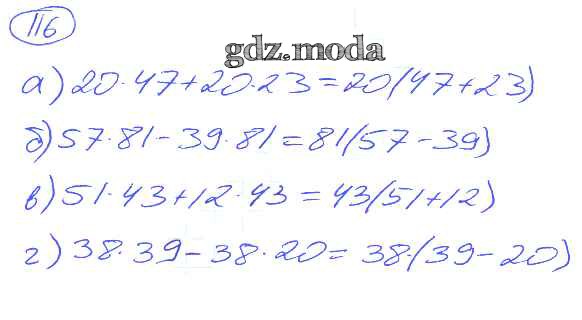 116
gdz.moda
а) 20·47+20·23=20(47+23)
б) 57·81-39·81=81(57-39)
в) 51·43+12·43=43(51+12)
г) 38·39-38·20=38·(39-20)